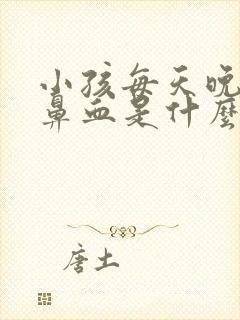 小孩每天晚
鼻血是什麼
唐土